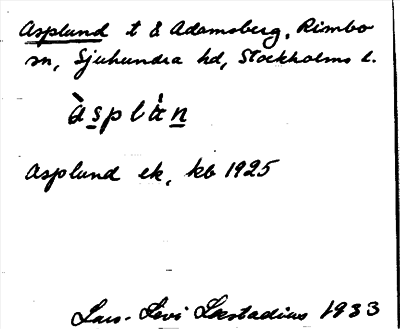 Asplund t 8 Adamsberg, Rimbo
sn, Sjuhundra hd, Stockholms l.
àsplàn
Asplund ek, kb 1925
Lars-Levi Læstadius 1933